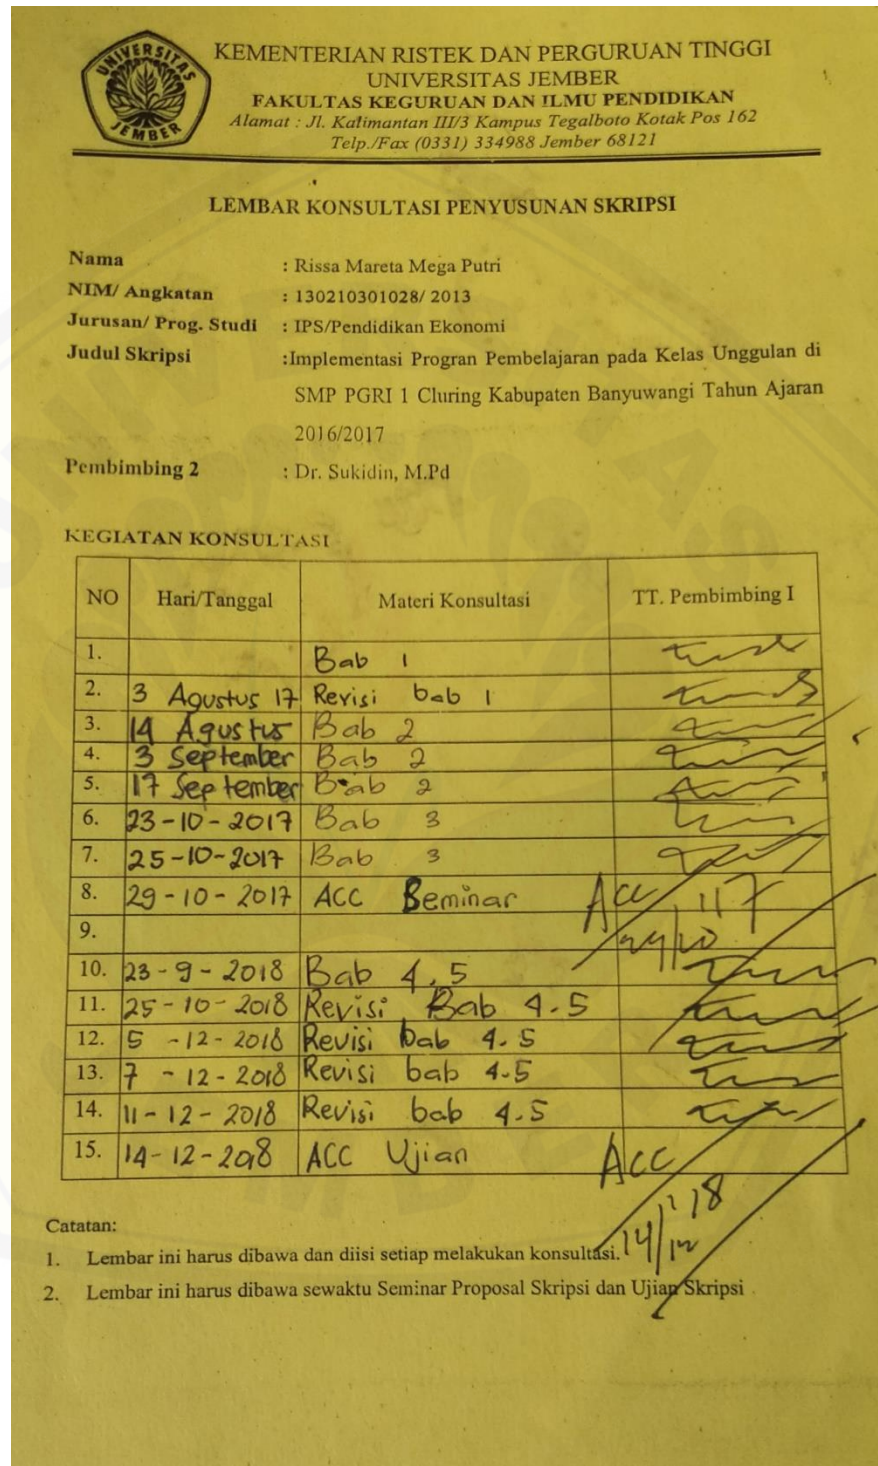 UNIVERSITAS
JEMBER
KEMENTERIAN RISTEK DAN PERGURUAN TINGGI
UNIVERSITAS JEMBER
FAKULTAS KEGURUAN DAN ILMU PENDIDIKAN
Alamat : Jl. Kalimantan III/3 Kampus Tegalboto Kotak Pos 162
Telp./Fax (0331) 334988 Jember 68121
LEMBAR KONSULTASI PENYUSUNAN SKRIPSI
Nama : Rissa Mareta Mega Putri
NIM/ Angkatan : 130210301028/ 2013
Jurusan/ Prog. Studi : IPS/Pendidikan Ekonomi
Judul Skripsi :Implementasi Progran Pembelajaran pada Kelas Unggulan di
SMP PGRI 1 Cluring Kabupaten Banyuwangi Tahun Ajaran
2016/2017
Pembimbing 2 : Dr. Sukidin, M.Pd
KEGIATAN KONSULTASI
NO Hari/Tanggal Materi Konsultasi TT. Pembimbing I
1. Bab 1
2. 3 Agustus 17 Revisi bab 1
3. 14 Agustus Bab 2
4. 3 September Bab 2
5. 17 September Bab 2
6. 23-10-2017 Bab 3
7. 25-10-2017 Bab 3
8. 29-10-2017 ACC Seminar Acc
9.
10. 23-9-2018 Bab 4,5
11. 25-10-2018 Revisi Bab 4.5
12. 5 -12-2018 Revisi bab 4.5
13. 7 -12-2018 Revisi bab 4-5
14. 11-12-2018 Revisi bab 4.5
15. 14-12-2018 ACC Ujian Acc
Catatan:
1. Lembar ini harus dibawa dan diisi setiap melakukan konsultasi.
2. Lembar ini harus dibawa sewaktu Seminar Proposal Skripsi dan Ujian Skripsi